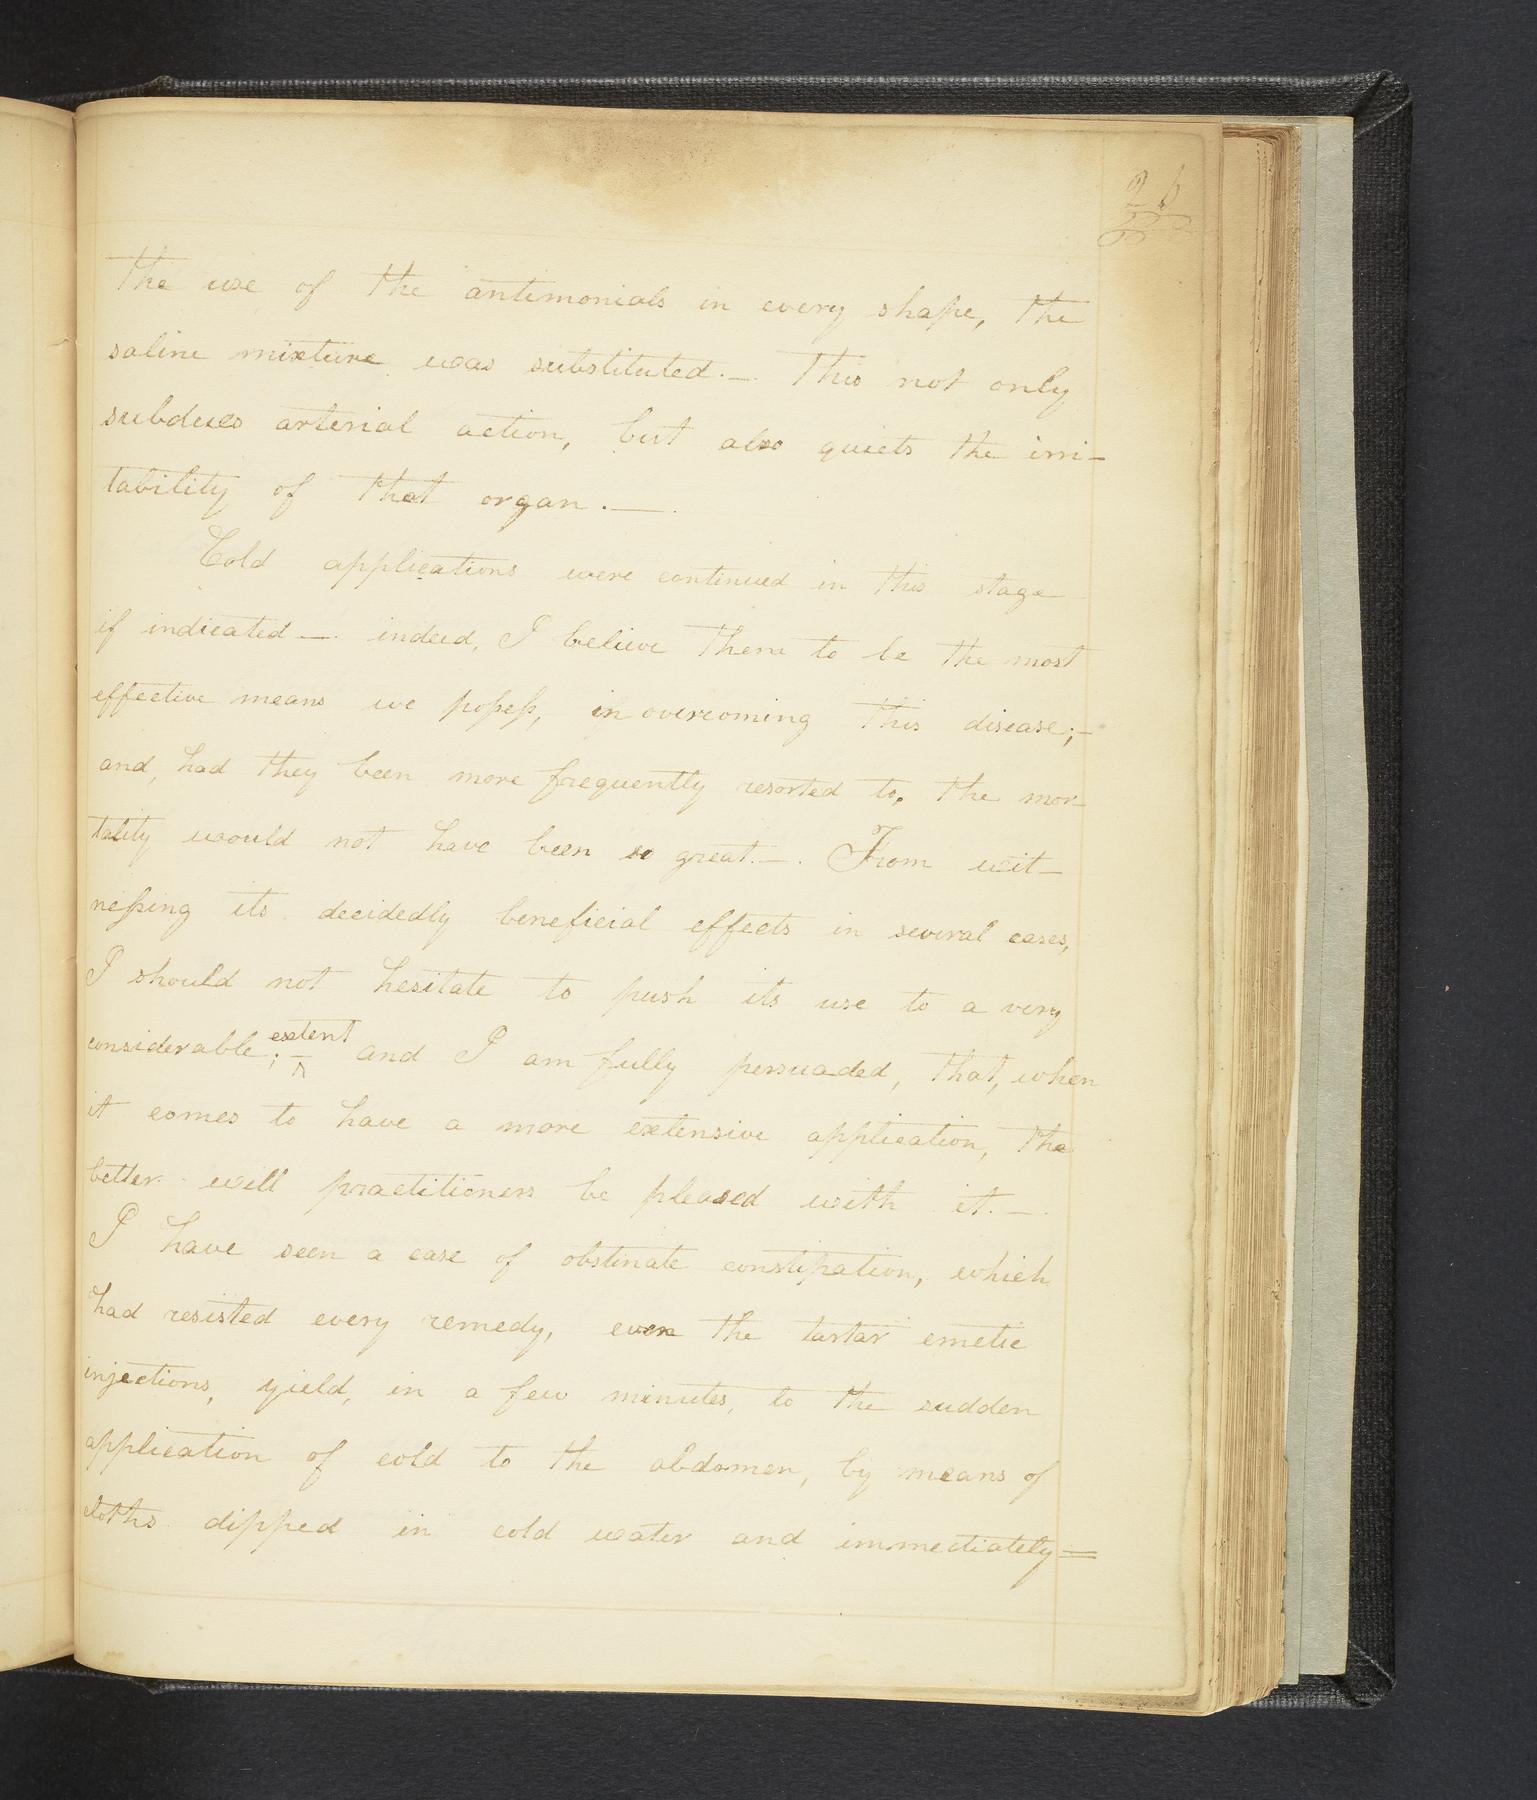 26
The use of the antimonials in every shape, the
saline mixture was substituted.— This not only
subdues arterial action, but also quiets the irri-
tability of that organ.—
Cold applications were continued in this stage
if indicated—. indeed, I believe them to be the most
effective means we possess, in overcoming this disease;—
and, had they been more frequently resorted to, the mor-
tality would not have been so great.—. From wit-
nessing its decidedly beneficial effects in several cases,
I should not hesitate to push its use to a very
considerable extent;— and I am fully persuaded, that, when
it comes to have a more extensive application, the
better will practitioners be pleased with it.—.
I have seen a case of obstinate constipation, which
had resisted every remedy, even the tartar emetic
injections, yield, in a few minutes, to the sudden
application of cold to the abdomen, by means of
cloths dipped in cold water and immediately=